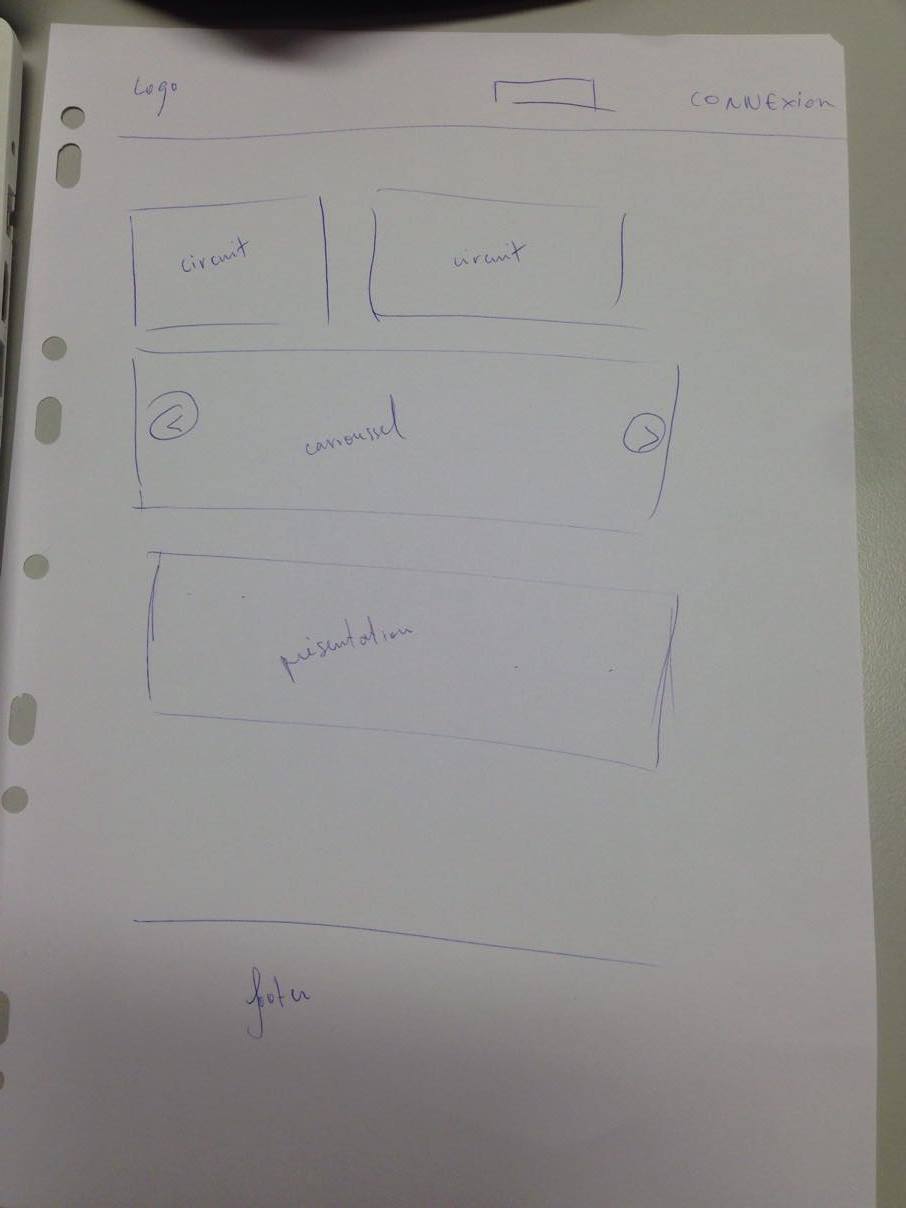 Logo
CONNEXion
circuit
circuit
<
carroussel
>
présentation
footer